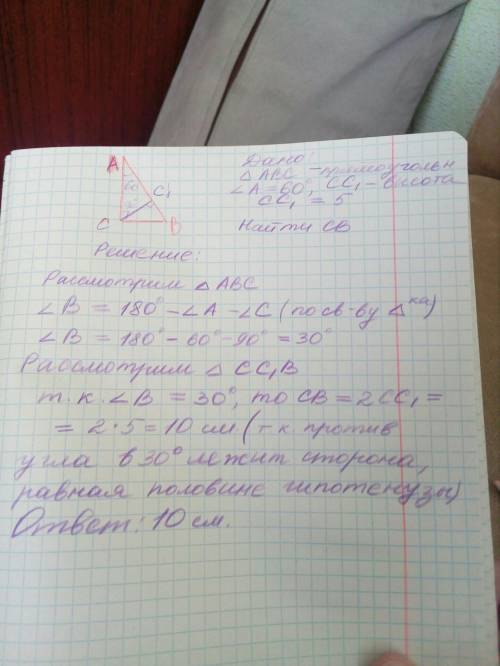 A
60
C₁
C
B
Дано:
△ABC - прямоугольн
∠A = 60°, CC₁ - высота
CC₁ = 5
Найти CB
Решение:
Рассмотрим △ABC
∠B = 180° - ∠A - ∠C (по св-ву △ка)
∠B = 180° - 60° - 90° = 30°
Рассмотрим △CC₁B
т.к. ∠B = 30°, то CB = 2CC₁ =
= 2·5 = 10 см (т.к. против
угла в 30° лежит сторона,
равная половине гипотенузы)
Ответ: 10 см.